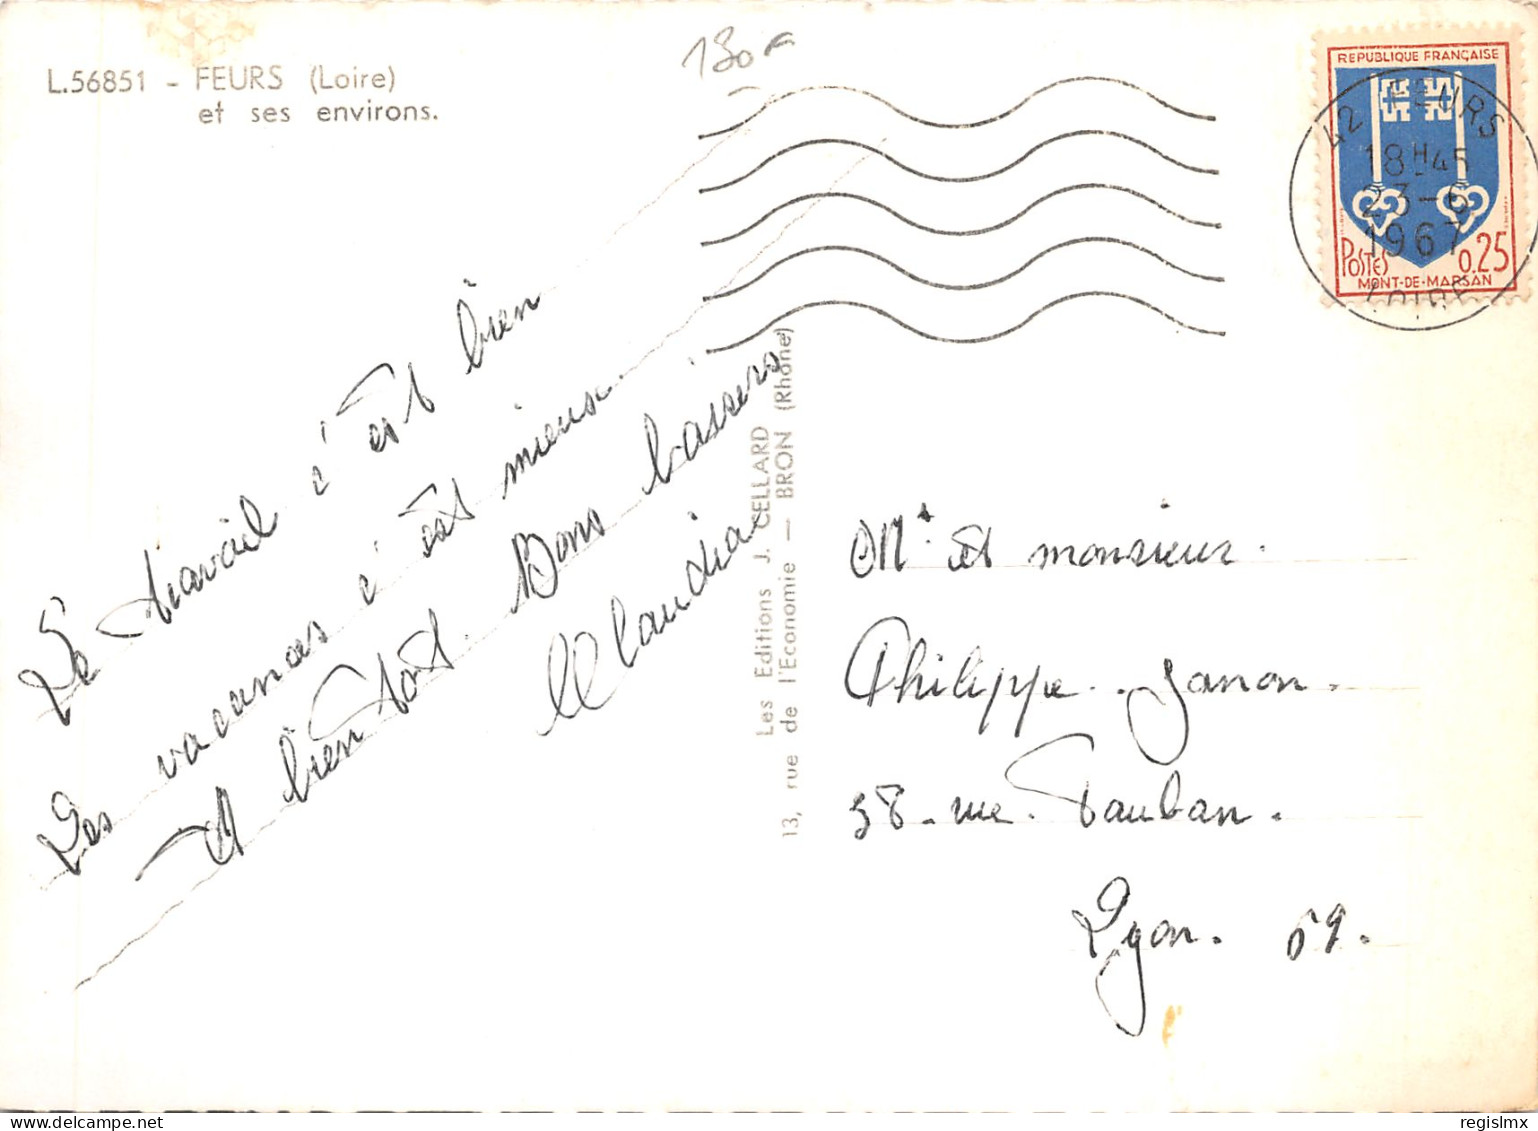 L.56851 - FEURS (Loire)
et ses environs.
130
REPUBLIQUE FRANÇAISE
POSTES
0.25
MONT-DE-MARSAN
42 FEURS
18H45
23-6
1967
LOIRE
Le travail c'est bien
Les vacances c'est mieux.
A bientôt. Bons baisers
Claudia
Les Editions J. CELLARD
13, rue de l'Economie — BRON (Rhône)
et monsieur.
Philippe. Janon.
38. rue. Vauban.
Lyon. 69.
regislmx